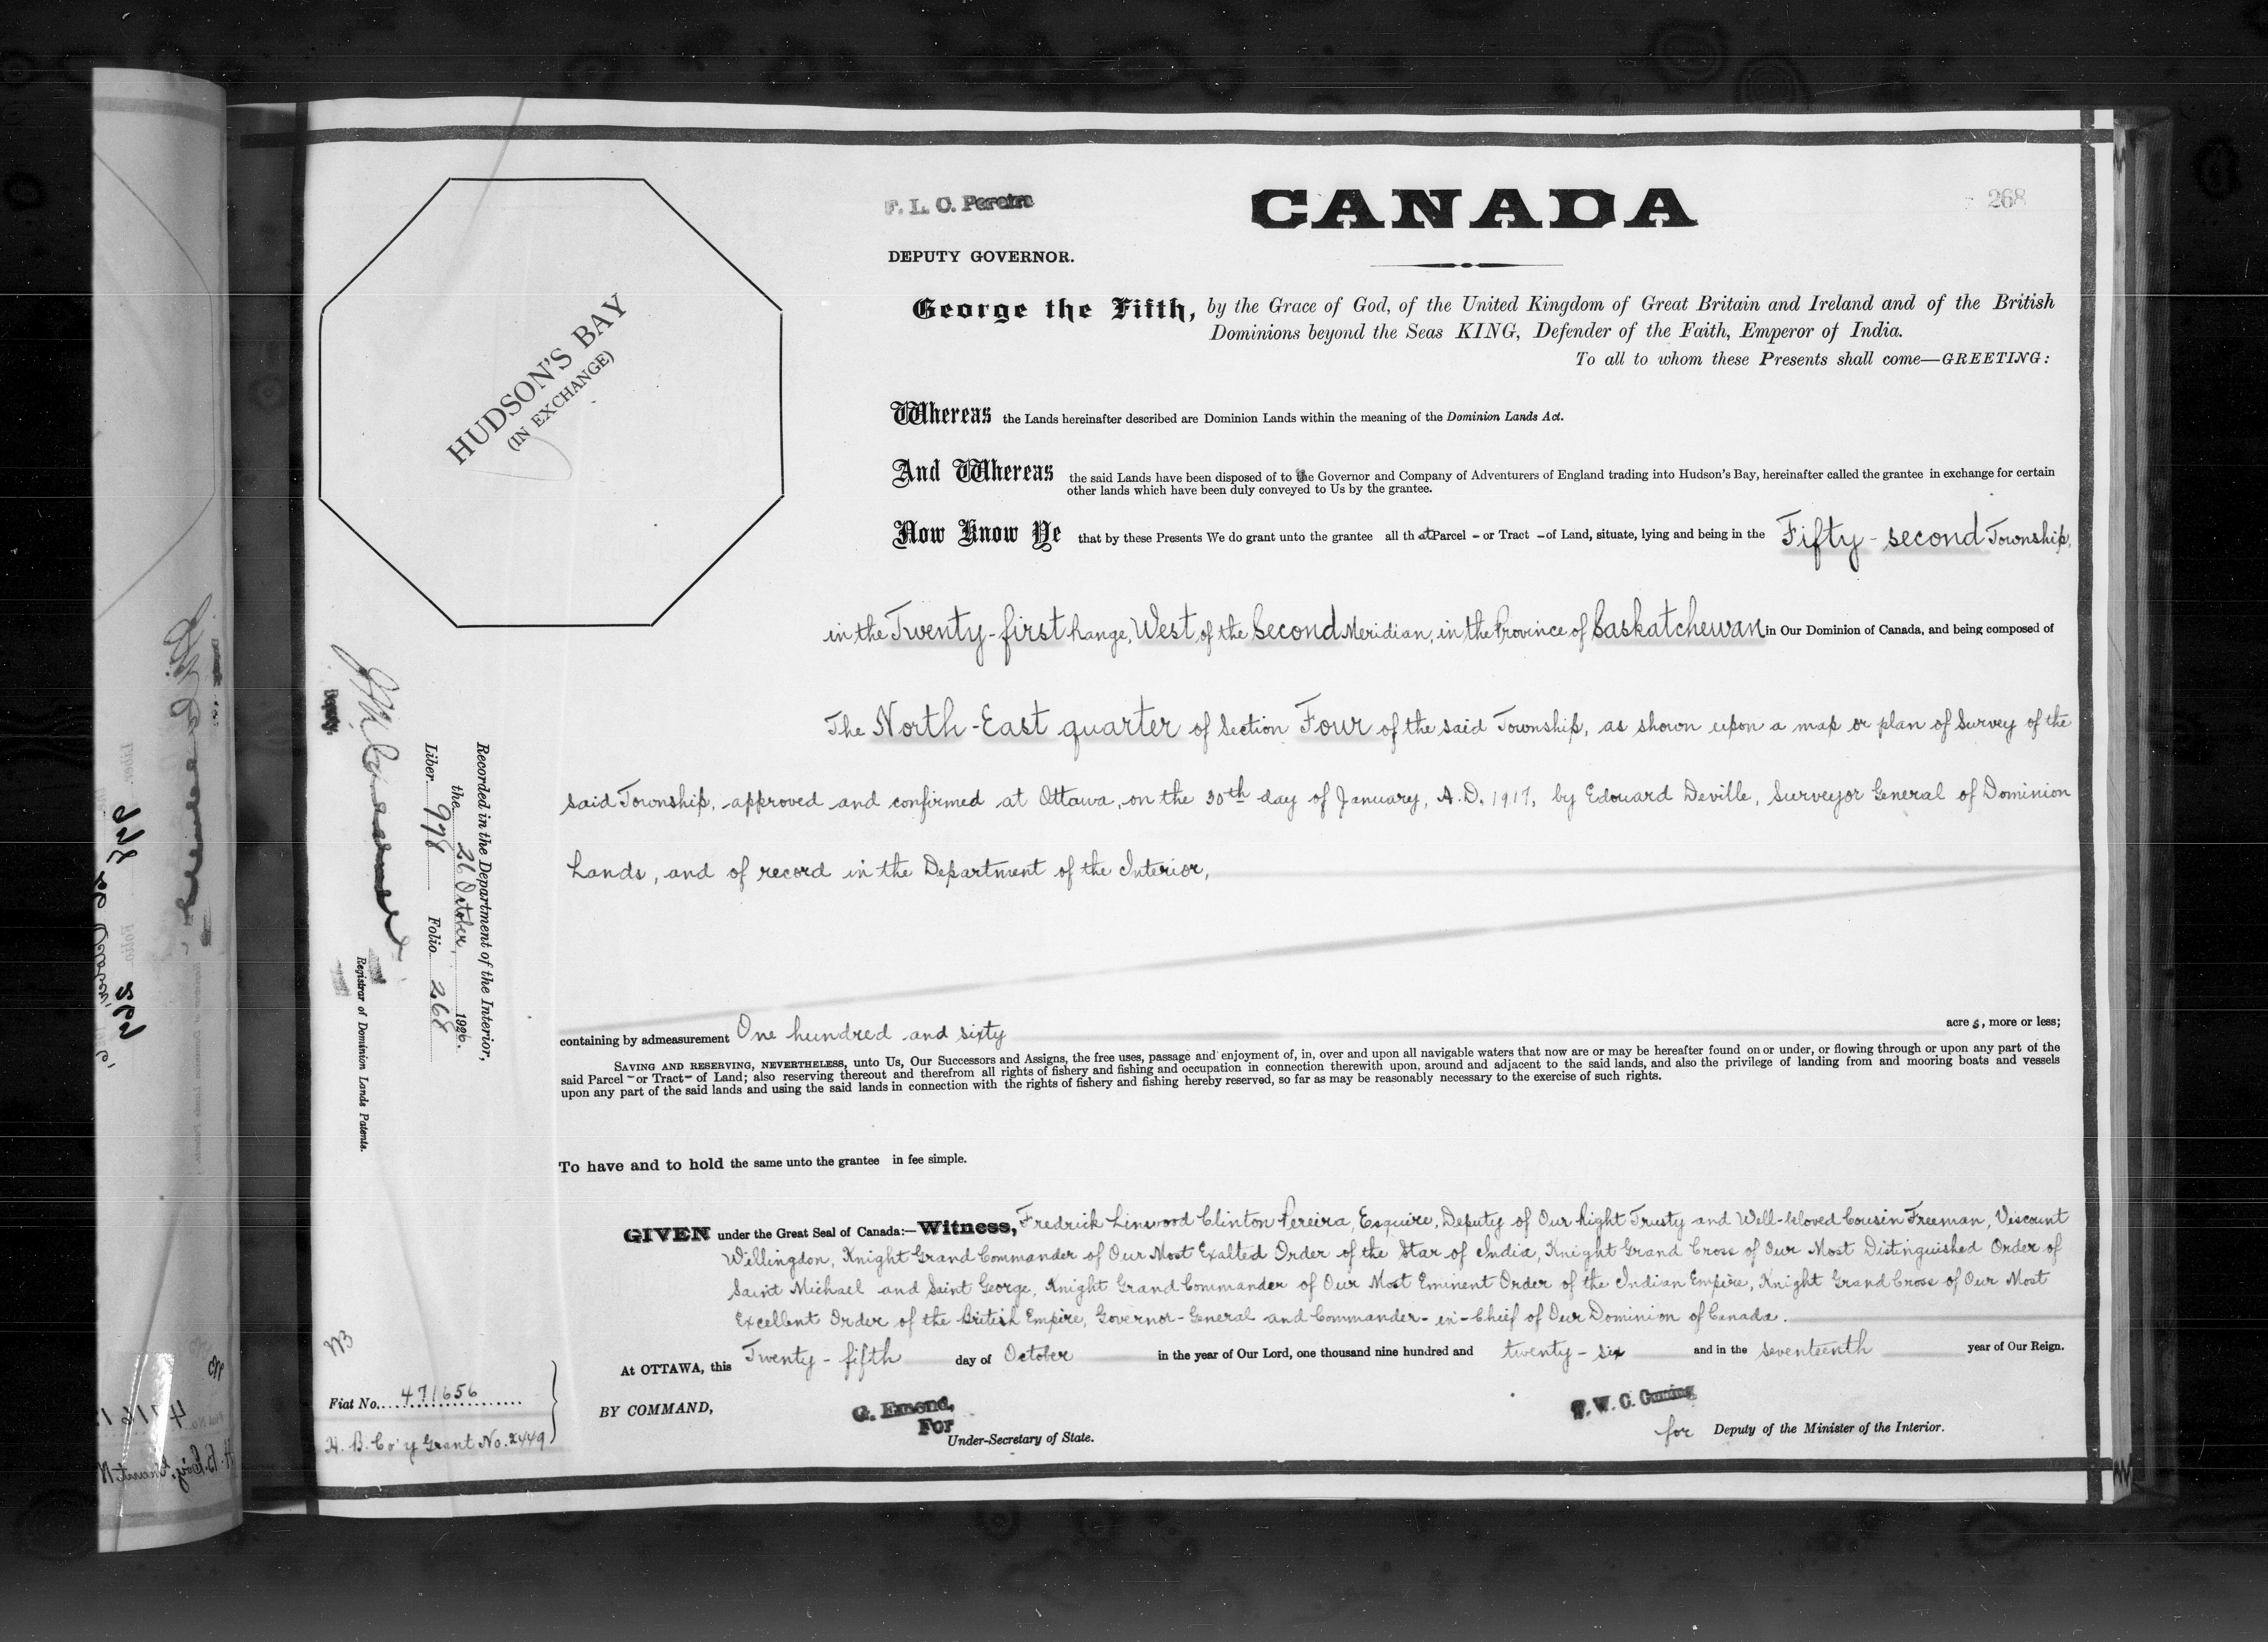 268
F. L. C. Pereira
CANADA
DEPUTY GOVERNOR.
HUDSON'S BAY
(IN EXCHANGE)
George the Fifth, by the Grace of God, of the United Kingdom of Great Britain and Ireland and of the British
Dominions beyond the Seas KING, Defender of the Faith, Emperor of India.
To all to whom these Presents shall come—GREETING:
Whereas the Lands hereinafter described are Dominion Lands within the meaning of the Dominion Lands Act.
And Whereas the said Lands have been disposed of to the Governor and Company of Adventurers of England trading into Hudson's Bay, hereinafter called the grantee in exchange for certain
other lands which have been duly conveyed to Us by the grantee.
Now Know Ye that by these Presents We do grant unto the grantee all that Parcel - or Tract - of Land, situate, lying and being in the Fifty-second Township,
in the Twenty-first Range, West of the Second Meridian, in the Province of Saskatchewan in Our Dominion of Canada, and being composed of
The North-East quarter of Section Four of the said Township, as shown upon a map or plan of Survey of the
said Township, approved and confirmed at Ottawa, on the 30th day of January, A.D. 1917, by Edouard Deville, Surveyor General of Dominion
Lands, and of record in the Department of the Interior,
containing by admeasurement One hundred and sixty acres, more or less;
SAVING AND RESERVING, NEVERTHELESS, unto Us, Our Successors and Assigns, the free uses, passage and enjoyment of, in, over and upon all navigable waters that now are or may be hereafter found on or under, or flowing through or upon any part of the
said Parcel - or Tract - of Land; also reserving thereout and therefrom all rights of fishery and fishing and occupation in connection therewith upon, around and adjacent to the said lands, and also the privilege of landing from and mooring boats and vessels
upon any part of the said lands and using the said lands in connection with the rights of fishery and fishing hereby reserved, so far as may be reasonably necessary to the exercise of such rights.
To have and to hold the same unto the grantee in fee simple.
GIVEN under the Great Seal of Canada:—Witness, Fredrick Linwood Clinton Pereira, Esquire, Deputy of Our Right Trusty and Well-beloved Cousin Freeman, Viscount
Willingdon, Knight Grand Commander of Our Most Exalted Order of the Star of India, Knight Grand Cross of Our Most Distinguished Order of
Saint Michael and Saint George, Knight Grand Commander of Our Most Eminent Order of the Indian Empire, Knight Grand Cross of Our Most
Excellent Order of the British Empire, Governor-General and Commander-in-Chief of Our Dominion of Canada.
At OTTAWA, this Twenty-fifth day of October in the year of Our Lord, one thousand nine hundred and twenty-six and in the seventeenth year of Our Reign.
BY COMMAND,
G. Emond,
For
Under-Secretary of State.
for Deputy of the Minister of the Interior.
Recorded in the Department of the Interior,
the 26 October 1926.
Liber 998 Folio 268
Deputy.
Registrar of Dominion Lands Patents.
Fiat No. 471656
H. B. Co'y Grant No. 2449